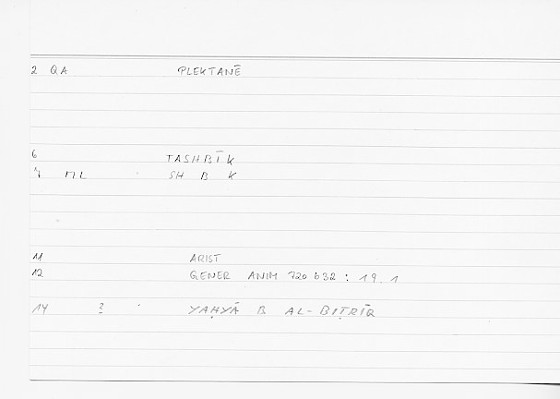 2 QA PLEKTANĒ
6 TASHBĪK
7 ML SH B K
11 ARIST
12 GENER ANIM 720 b 32 : 19.1
14 ? YAḤYĀ B AL-BIṬRĪQ